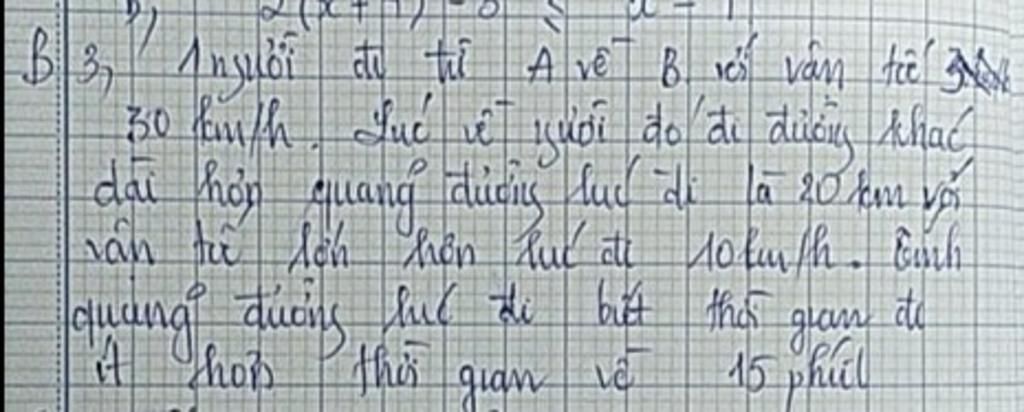 b, 2(x+1) - 8 ≤ x - 1
B 3, 1 người đi từ A về B với vận tốc
30 km/h. Lúc về người đó đi đường khác
dài hơn quãng đường lúc đi là 20 km với
vận tốc lớn hơn lúc đi 10 km/h. Tính
quãng đường lúc đi biết thời gian đi
ít hơn thời gian về 15 phút